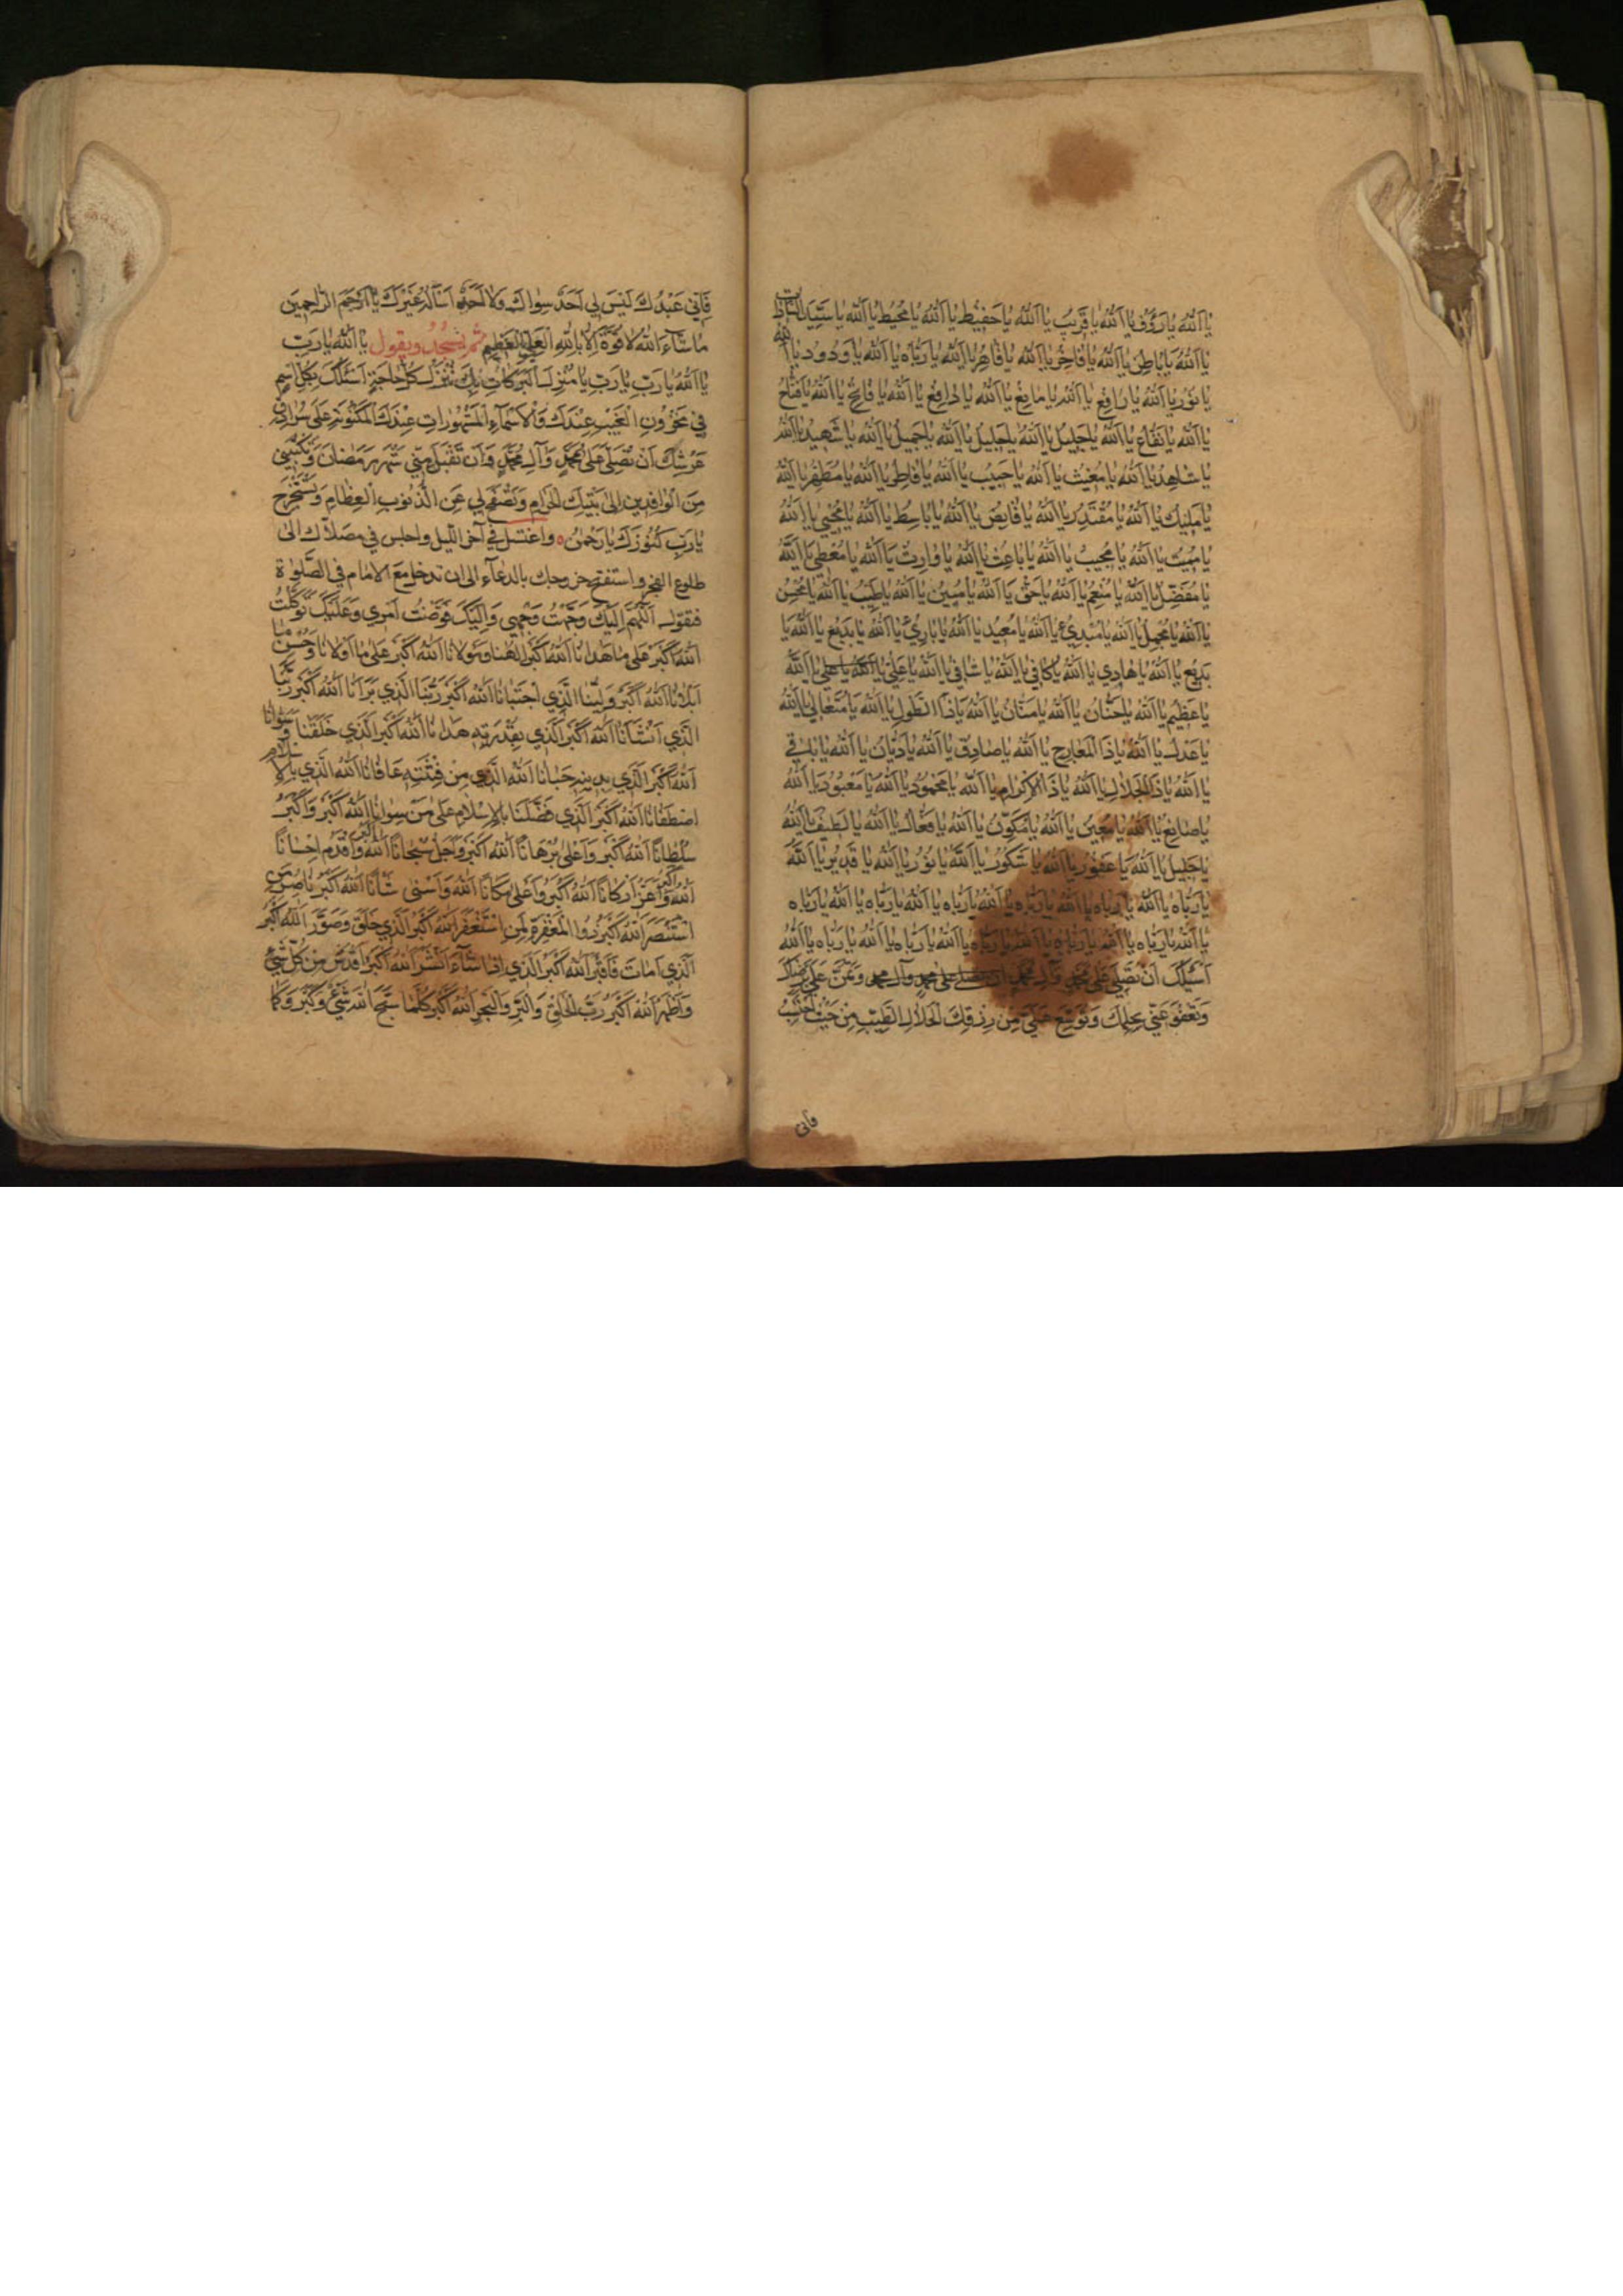 يا اَللهُ يا رَؤُفُ يا اَللهُ يا قَريبُ يا اَللهُ يا حَفيظُ يا اَللهُ يا مُحيطُ يا اَللهُ يا سَيِّدَ السّاداتِ
يا اَللهُ يا باطِنُ يا اَللهُ يا فاخِرُ يا اَللهُ يا قاهِرُ يا اَللهُ يا رَبّاهُ يا اَللهُ يا وَدُودُ يا اَللهُ
يا نُورُ يا اَللهُ يا رافِعُ يا اَللهُ يا مانِعُ يا اَللهُ يا دافِعُ يا اَللهُ يا فاتِحُ يا اَللهُ يا فَتّاحُ
يا اَللهُ يا نَفّاعُ يا اَللهُ يا جَليلُ يا اَللهُ يا جَليلُ يا اَللهُ يا جَميلُ يا اَللهُ يا شَهيدُ يا اَللهُ
يا شاهِدُ يا اَللهُ يا مُغيثُ يا اَللهُ يا حَبيبُ يا اَللهُ يا فاطِرُ يا اَللهُ يا مُطَهِّرُ يا اَللهُ
يا مَليكُ يا اَللهُ يا مُقْتَدِرُ يا اَللهُ يا قابِضُ يا اَللهُ يا باسِطُ يا اَللهُ يا مُحْيي يا اَللهُ
يا مُميتُ يا اَللهُ يا مُجيبُ يا اَللهُ يا باعِثُ يا اَللهُ يا وارِثُ يا اَللهُ يا مُعْطي يا اَللهُ
يا مُفَضِّلُ يا اَللهُ يا مُنْعِمُ يا اَللهُ يا حَقُّ يا اَللهُ يا مُبينُ يا اَللهُ يا طَيِّبُ يا اَللهُ يا مُحْسِنُ
يا اَللهُ يا مُجْمِلُ يا اَللهُ يا مُبْدِئُ يا اَللهُ يا مُعيدُ يا اَللهُ يا بارِئُ يا اَللهُ يا بَديعُ يا اَللهُ يا
بَديعُ يا اَللهُ يا هادي يا اَللهُ يا كافي يا اَللهُ يا شافي يا اَللهُ يا عَلِيُّ يا اَللهُ يا علي يا اَللهُ
يا عَظيمُ يا اَللهُ يا حَنّانُ يا اَللهُ يا مَنّانُ يا اَللهُ يا ذَا الطَّوْلِ يا اَللهُ يا مُتَعالي يا اَللهُ
يا عَدْلُ يا اَللهُ يا ذَا المَعارِجِ يا اَللهُ يا صادِقُ يا اَللهُ يا دَيّانُ يا اَللهُ يا باقي
يا اَللهُ يا ذَا الجَلالِ يا اَللهُ يا ذَا الاِكْرامِ يا اَللهُ يا مَحْمُودُ يا اَللهُ يا مَعْبُودُ يا اَللهُ
يا صانِعُ يا اَللهُ يا مُعينُ يا اَللهُ يا مُكَوِّنُ يا اَللهُ يا فَعّالُ يا اَللهُ يا لَطيفُ يا اَللهُ
يا جَليلُ يا اَللهُ يا غَفُورُ يا اَللهُ يا شَكُورُ يا اَللهُ يا نُورُ يا اَللهُ يا قَديرُ يا اَللهُ
يا رَبّاهُ يا اَللهُ يا رَبّاهُ يا اَللهُ يا رَبّاهُ يا اَللهُ يا رَبّاهُ يا اَللهُ يا رَبّاهُ يا اَللهُ يا رَبّاهُ
يا اَللهُ يا رَبّاهُ يا اَللهُ يا رَبّاهُ يا اَللهُ يا رَبّاهُ يا اَللهُ يا رَبّاهُ يا اَللهُ يا رَبّاهُ يا اَللهُ
اَسْئَلُكَ اَنْ تُصَلِّيَ عَلى مُحَمَّدٍ وَآلِ مُحَمَّدٍ على محمد وآل محمد وَتَمُنَّ عَلَيَّ بِرِضاكَ
وَتَعْفُوَ عَنّي بِحِلْمِكَ وَتُوَسِّعَ عَلَيَّ مِنْ رِزْقِكَ الحَلالِ الطَّيِّبِ مِنْ حَيْثُ اَحْتَسِبُ
فانى
فَاِنّي عَبْدُكَ لَيْسَ لي اَحَدٌ سِواكَ وَلا اَحَدٌ اَسْأَلُهُ غَيْرُكَ يا اَرْحَمَ الرّاحِمينَ
ما شاءَ اللهُ لا قُوَّةَ اِلّا بِاللهِ العَلِيِّ العَظيمِ ثم تسجد ويقول يا اَللهُ يا رَبِّ
يا اَللهُ يا رَبِّ يا رَبِّ يا مُنْزِلَ البَرَكاتِ بِكَ تُنْزَلُ كُلُّ حاجَةٍ اَسْئَلُكَ بِكُلِّ اسْمٍ
في مَخْزُونِ الغَيْبِ عِنْدَكَ وَالاَسْماءِ المَشْهُوراتِ عِنْدَكَ المَكْتُوبَةِ عَلى سُرادِقِ
عَرْشِكَ اَنْ تُصَلِّيَ عَلى مُحَمَّدٍ وَآلِ مُحَمَّدٍ وَاَنْ تَقْبَلَ مِنّي شَهْرَ رَمَضانَ وَتَكْتُبَني
مِنَ الوافِدينَ اِلى بَيْتِكَ الحَرامِ وَتَصْفَحَ لي عَنِ الذُّنُوبِ العِظامِ وَتَسْتَخْرِجَ
يا رَبِّ كُنُوزَكَ يا رَحْمٰنُ ه واغتسل في آخر الليل واجلس في مصلاك الى
طلوع الفجر واستفتح خروجك بالدعاء الى ان تدخل مع الامام في الصلوة
فتقول اَللّهُمَّ اِلَيْكَ وَجَّهْتُ وَجْهي وَاِلَيْكَ فَوَّضْتُ اَمْري وَعَلَيْكَ تَوَكَّلْتُ
اَللهُ اَكْبَرُ عَلى ما هَدانا اَللهُ اَكْبَرُ اِلهُنا وَمَوْلانا اَللهُ اَكْبَرُ عَلى ما اَوْلانا وَحُسْنِ ما
اَبْلانا اَللهُ اَكْبَرُ وَلِيُّنا الَّذي اجْتَبانا اَللهُ اَكْبَرُ رَبُّنَا الَّذي بَرَانا اَللهُ اَكْبَرُ رَبُّنا
الَّذي اَنْشَأَنا اَللهُ اَكْبَرُ الَّذي بِقُدْرَتِهِ هَدانا اَللهُ اَكْبَرُ الَّذي خَلَقَنا وَسَوّانا
اَللهُ اَكْبَرُ الَّذي بِدينِهِ حَبانا اَللهُ الَّذي مِنْ فِتْنَتِهِ عافانا اَللهُ الَّذي بِالاِسْلامِ
اصْطَفانا اَللهُ اَكْبَرُ الَّذي فَضَّلَنا بِالاِسْلامِ عَلى مَنْ سِوانا اَللهُ اَكْبَرُ وَاَكْبَرُ
سُلْطانًا اَللهُ اَكْبَرُ وَاَعْلى بُرْهانًا اَللهُ اَكْبَرُ وَاَجَلُّ سُبْحانًا اَللهُ اَكْبَرُ وَاَقْدَمُ اِحْسانًا
اَللهُ اَكْبَرُ وَاَعَزُّ اَرْكانًا اَللهُ اَكْبَرُ وَاَعْلى مَكانًا اَللهُ وَاَسْنى شَأْنًا اَللهُ اَكْبَرُ ناصِرُ مَنِ
اسْتَنْصَرَ اَللهُ اَكْبَرُ ذُو المَغْفِرَةِ لِمَنِ اسْتَغْفَرَ اَللهُ اَكْبَرُ الَّذي خَلَقَ وَصَوَّرَ اَللهُ اَكْبَرُ
الَّذي اَماتَ فَاَقْبَرَ اَللهُ اَكْبَرُ الَّذي اِذا شاءَ اَنْشَرَ اَللهُ اَكْبَرُ اَقْدَسُ مِنْ كُلِّ شَيْءٍ
وَاَطْهَرُ اَللهُ اَكْبَرُ رَبُّ الخَلْقِ وَالبَرِّ وَالبَحْرِ اَللهُ اَكْبَرُ كُلَّما سَبَّحَ اللهَ شَيْءٌ وَكَبَّرَ وَكَما